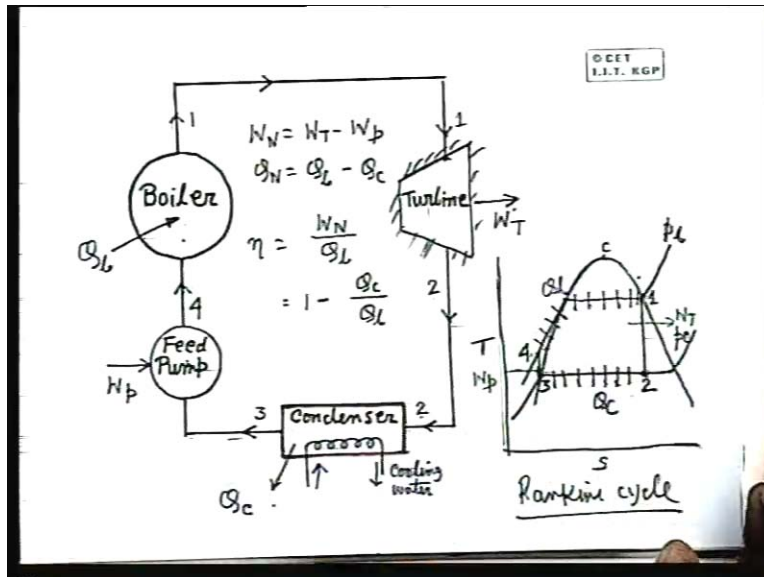 © CET
I.I.T. KGP
1
1
W_N = W_T - W_P
Q_N = Q_b - Q_c
Boiler
Q_b
η = W_N / Q_b
= 1 - Q_c / Q_b
Turbine
W_T
2
4
Feed
Pump
W_P
3
Condenser
2
Cooling
water
Q_c
c
P_b
Q_b
1
W_T
P_c
T
4
W_P
3
2
Q_c
S
Rankine cycle